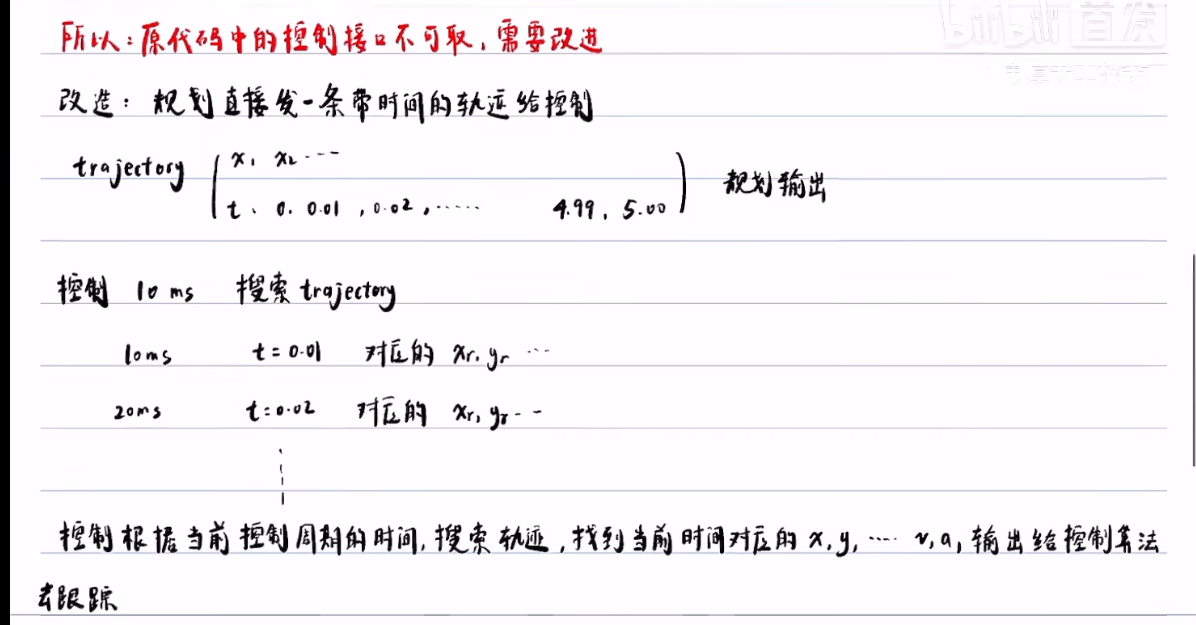 bilibili 首发
所以：原代码中的控制接口不可取，需要改进
改造：规划直接发一条带时间的轨迹给控制
trajectory ( x₁ x₂ ···
t、 0. 0.01 , 0.02 , ····· 4.99, 5.00 ) 规划输出
控制 10 ms 搜索 trajectory
10ms t = 0.01 对应的 xr, yr ···
20ms t=0.02 对应的 xr, yr - -
控制根据当前控制周期的时间, 搜索轨迹, 找到当前时间对应的 x, y, ···· v, a, 输出给控制算法
去跟踪